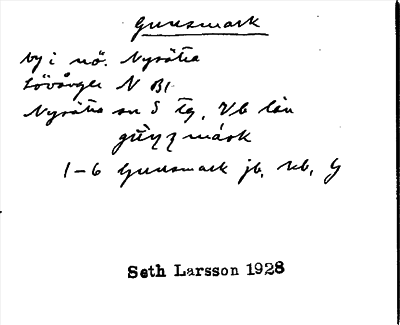 Gunsmark
by i nö. Nysätra
Lövånger N Bl.
Nysätra sn S tg, Vb län
1-6 Gunsmark jb,
Seth Larsson 1928